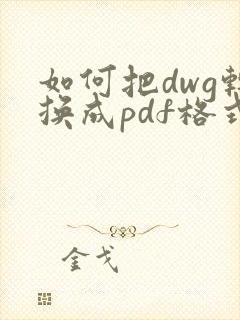 如何把dwg转
换成pdf格式
金戈